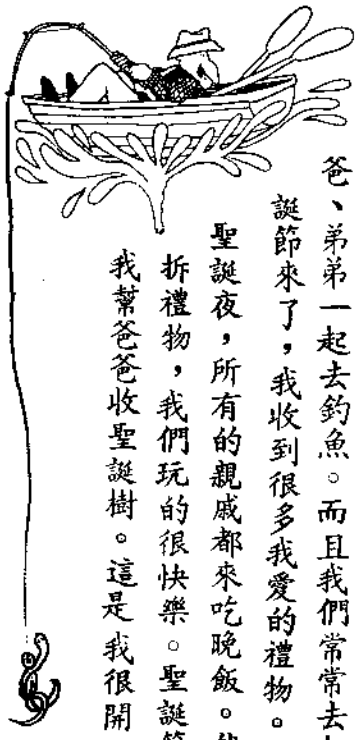 爸、弟弟一起去釣魚。而且我們常常去
誕節來了,我收到很多我愛的禮物。
聖誕夜,所有的親戚都來吃晚飯。
拆禮物,我們玩的很快樂。聖誕節
我幫爸爸收聖誕樹。這是我很開